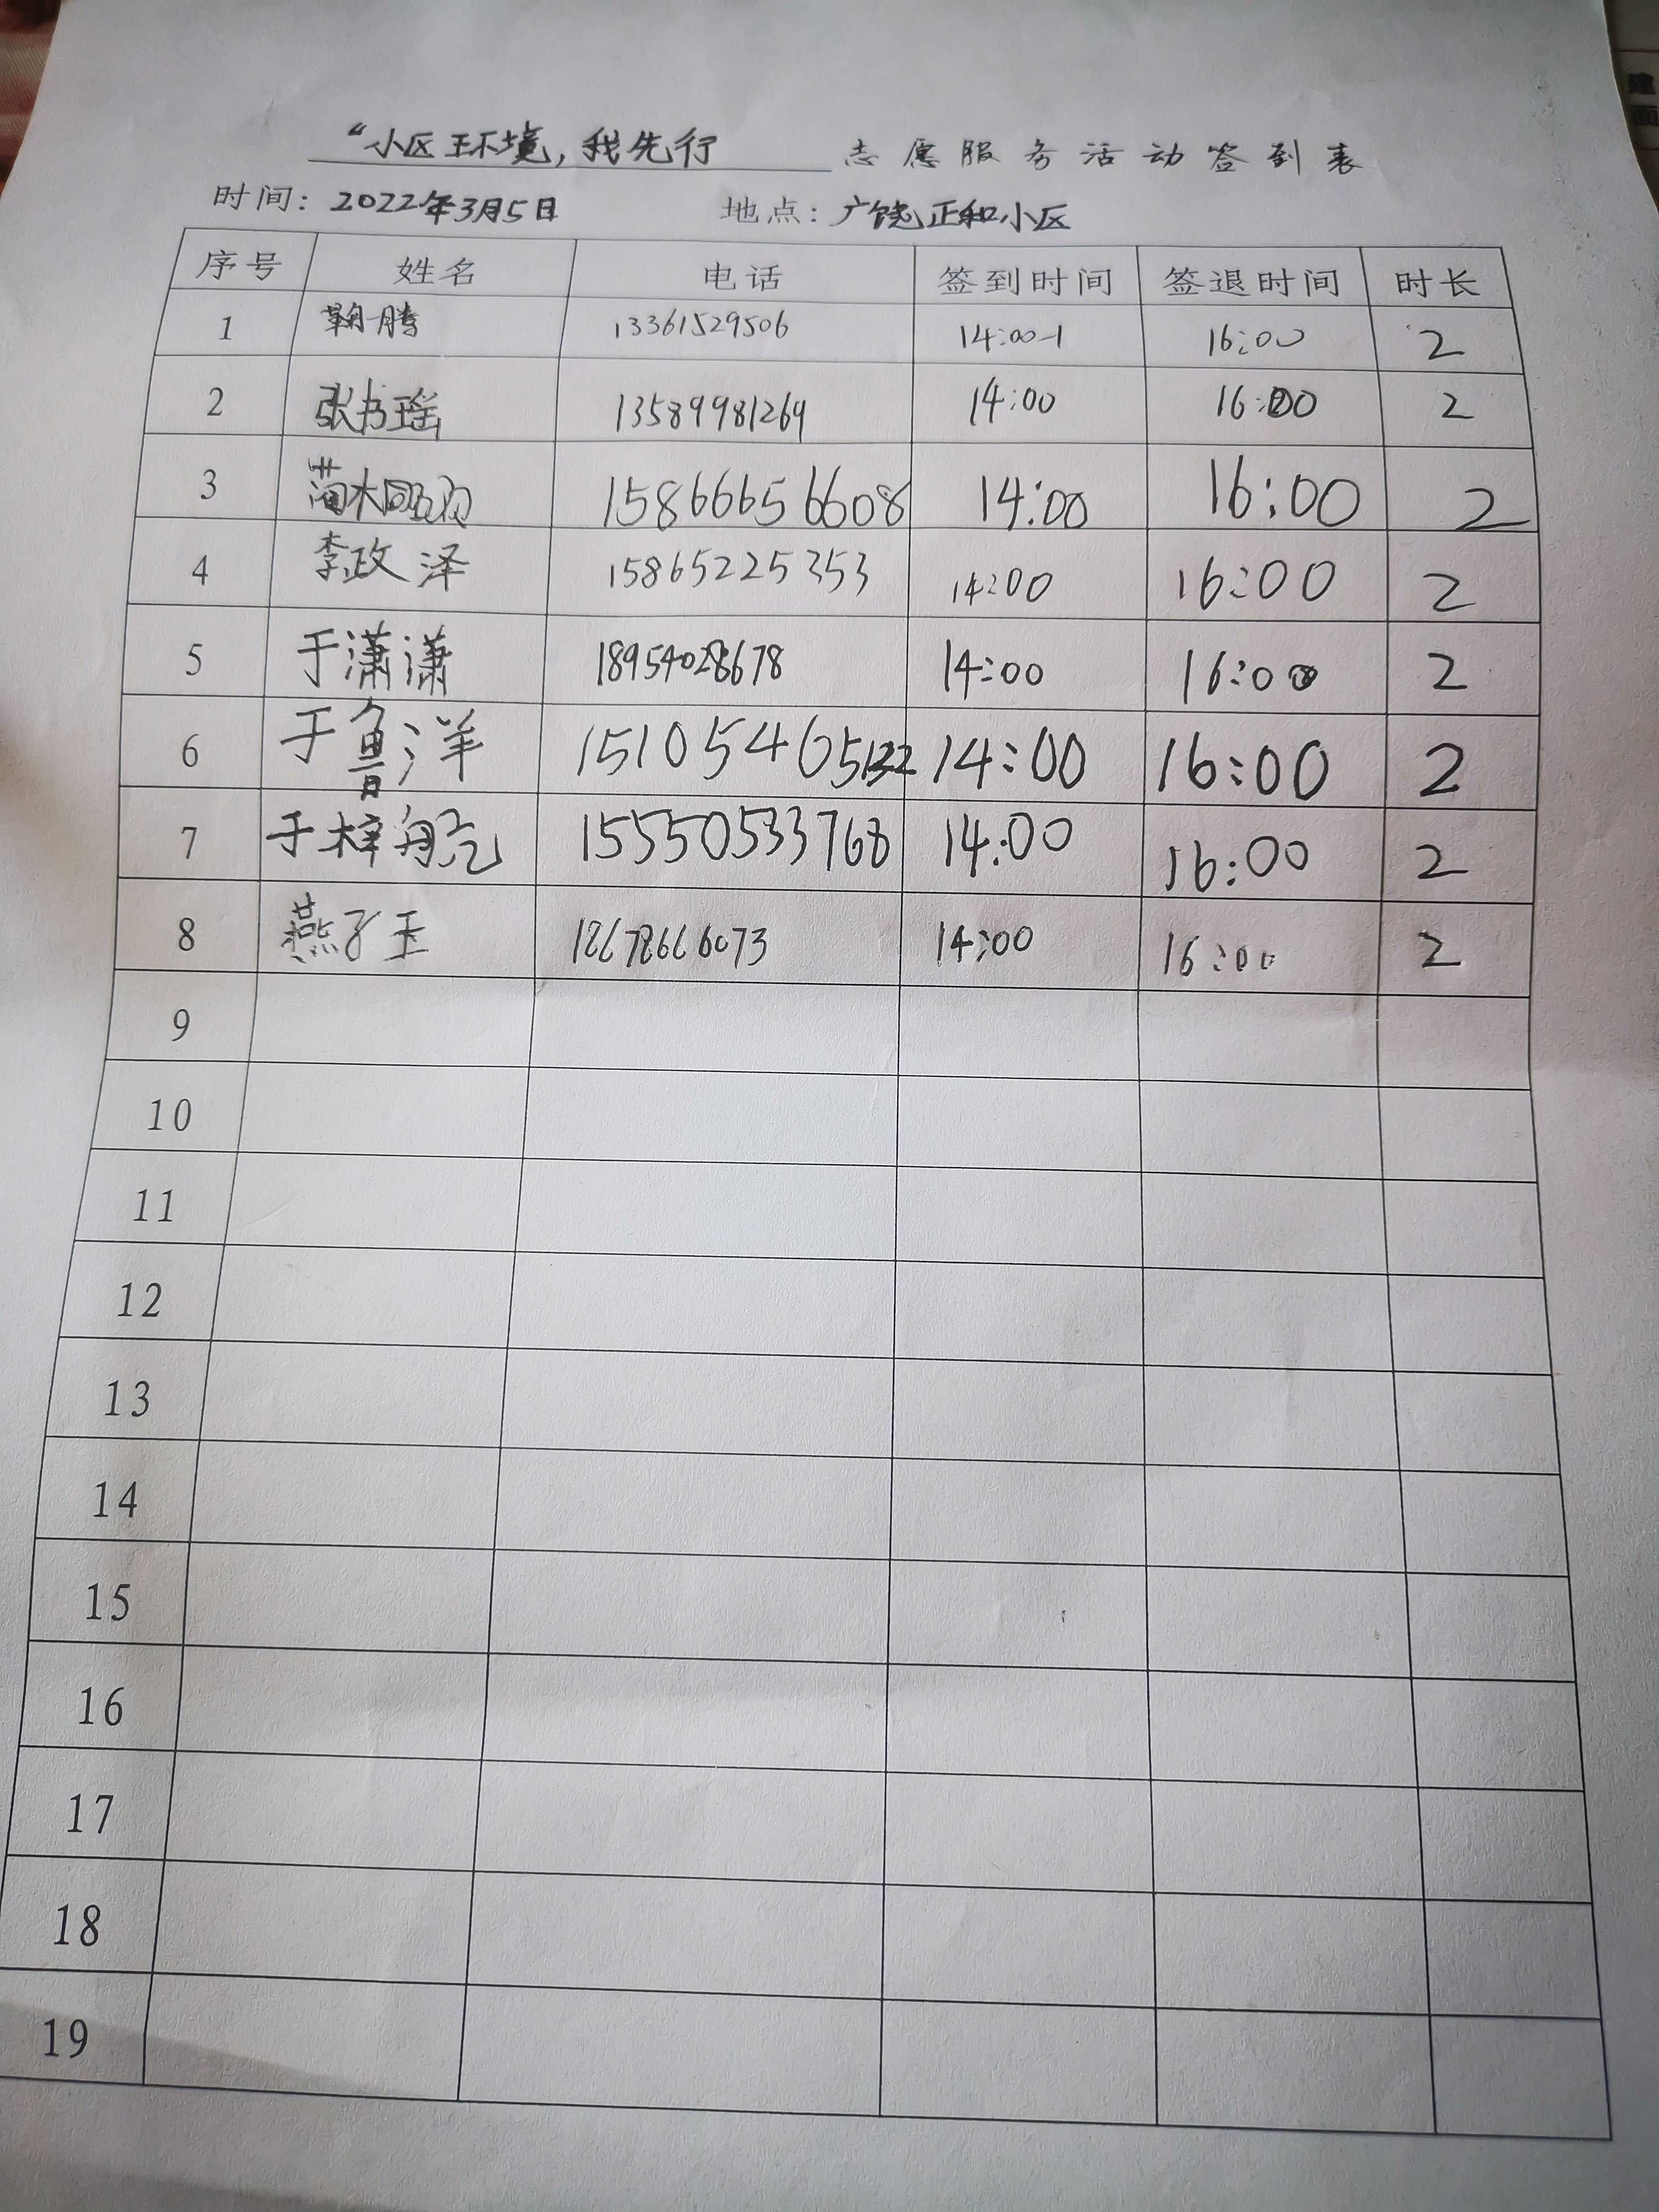 “小区环境,我先行 志愿服务活动签到表
时间:2022年3月5日 地点:广饶正和小区
序号 姓名 电话 签到时间 签退时间 时长
1 鞠腾 13361529506 14:00 16:00 2
2 张书瑶 13589981269 14:00 16:00 2
3 15866656608 14:00 16:00 2
4 李政泽 15865225353 14:00 16:00 2
5 于潇潇 18954028678 14:00 16:00 2
6 于鲁洋 14:00 16:00 2
7 于梓翔 15550533768 14:00 16:00 2
8 燕子玉 18678666073 14:00 16:00 2
9
10
11
12
13
14
15
16
17
18
19